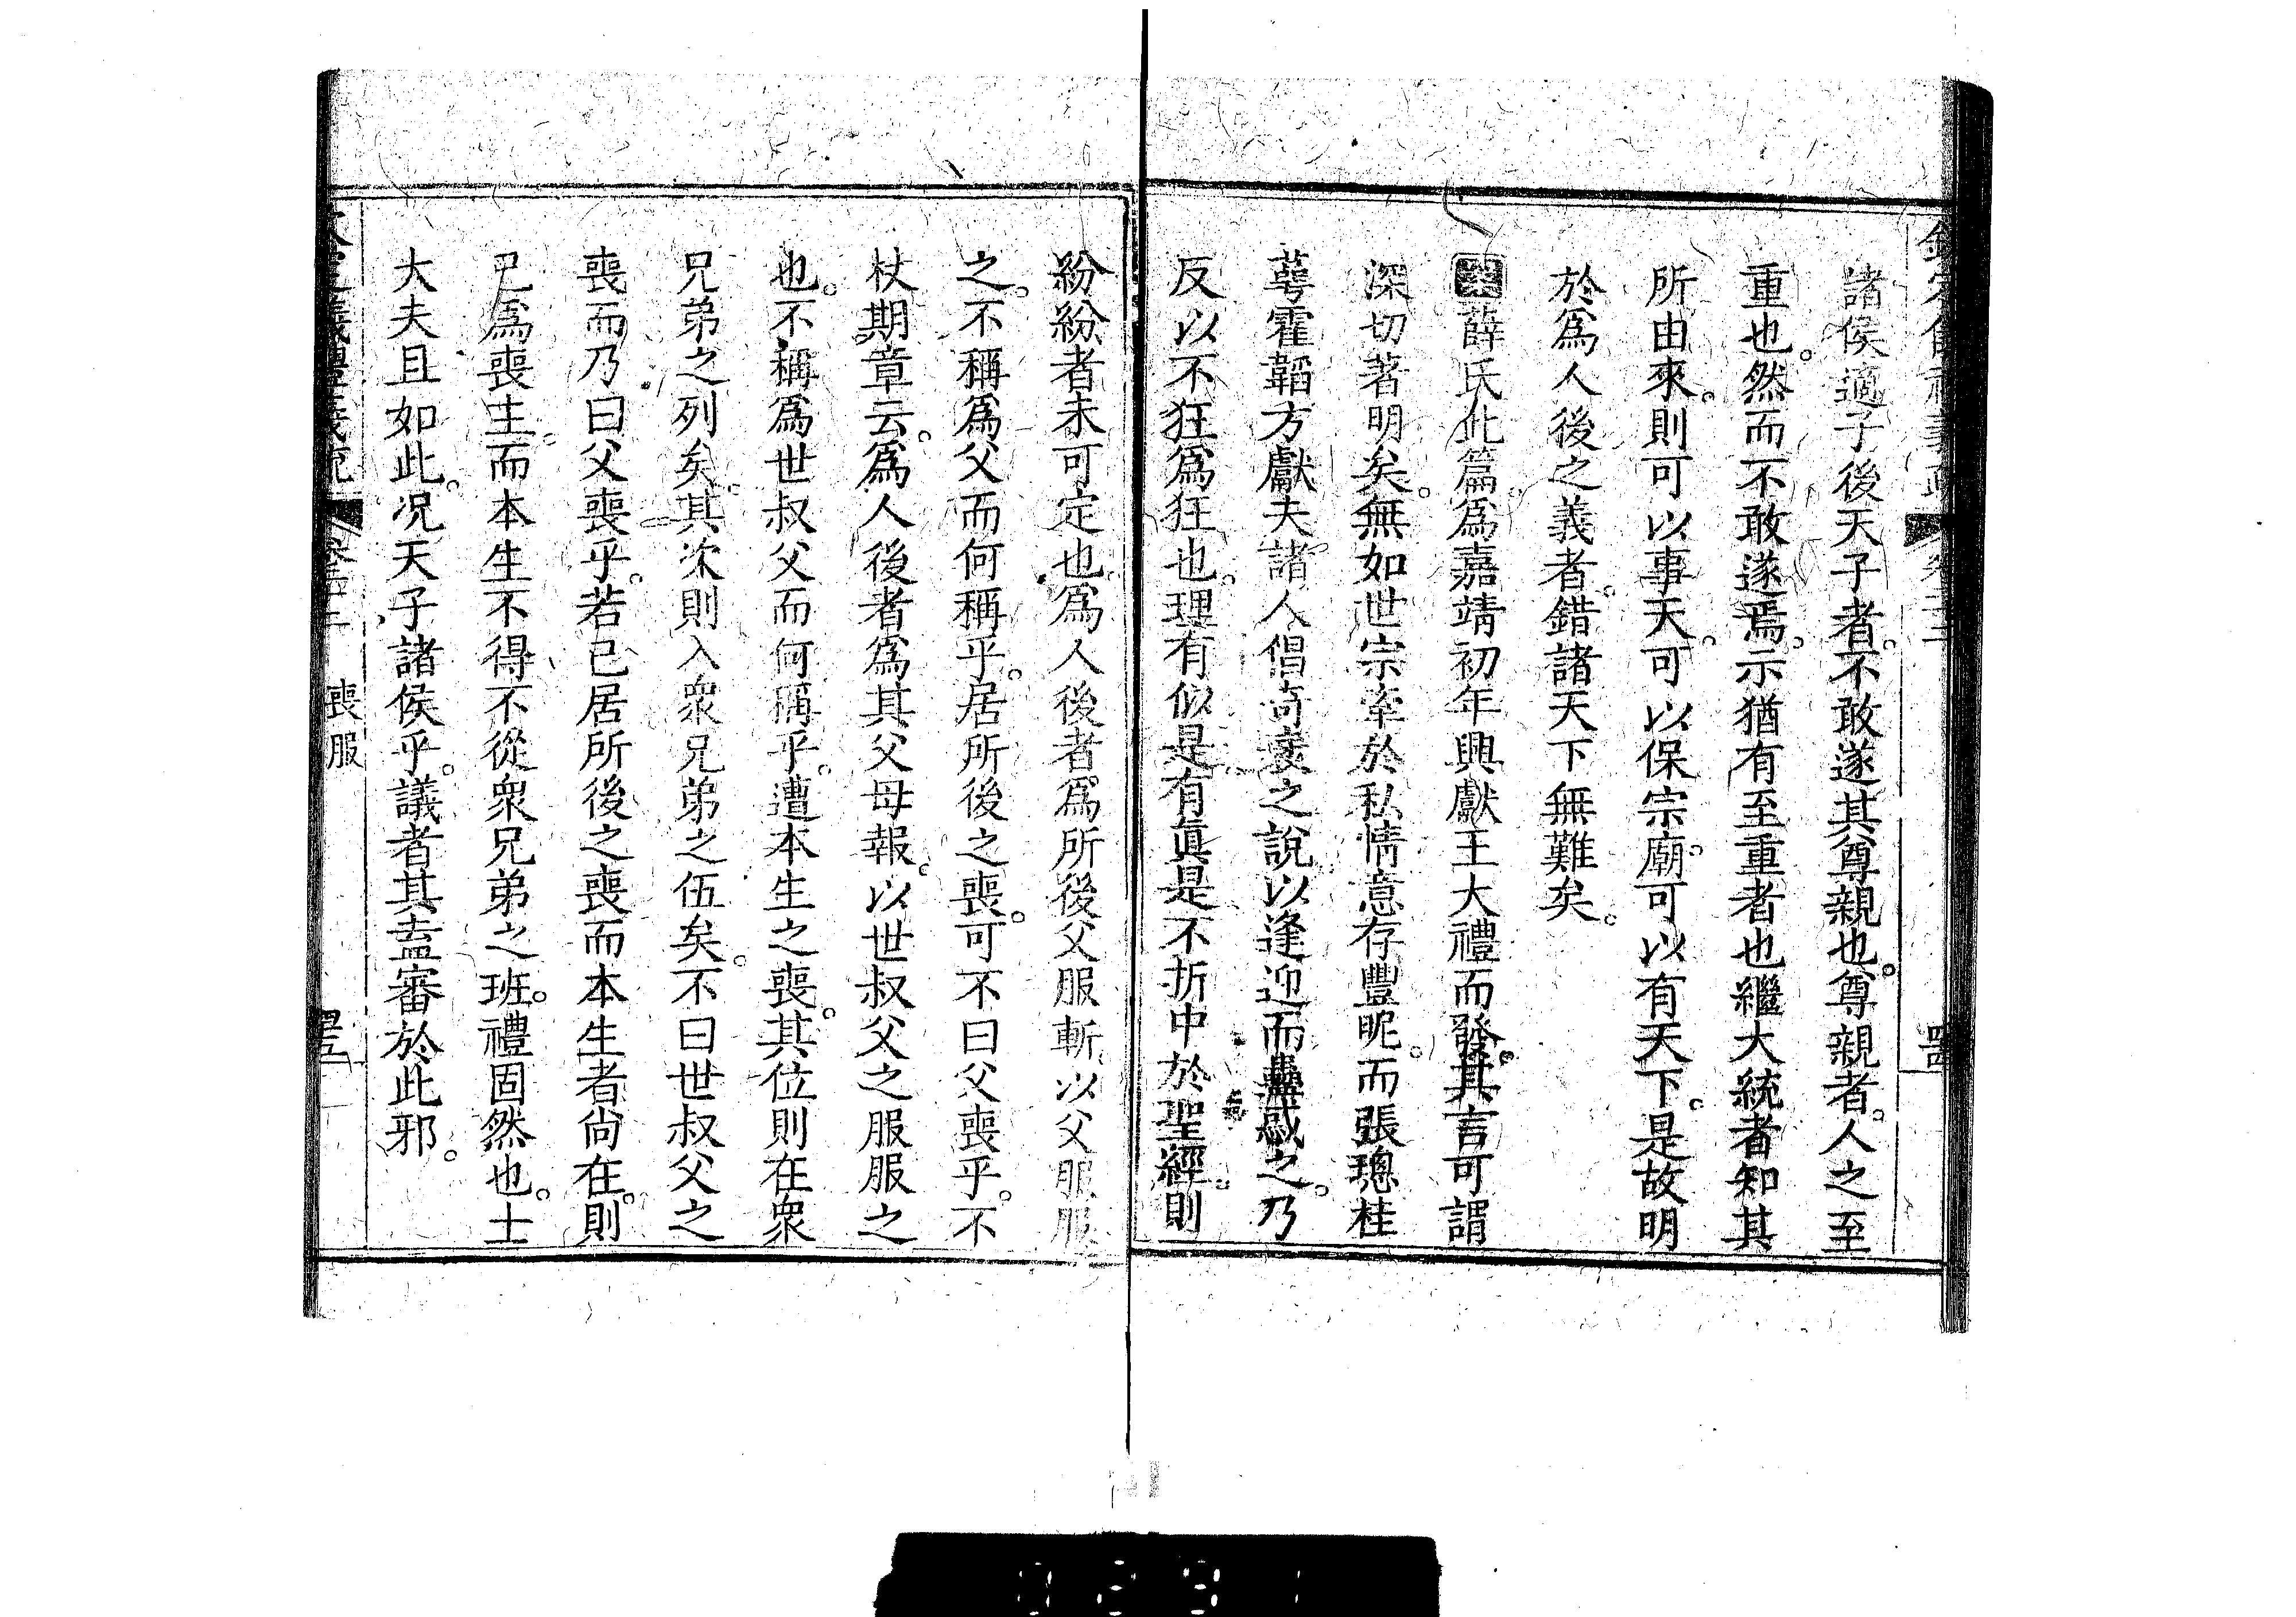 諸侯適子後天子者。不敢遂其尊親也。尊親者。人之至
重也。然而不敢遂焉。示猶有至重者也繼大統者知其
所由來。則可以事天。可以保宗廟。可以有天下。是故明
於爲人後之義者。錯諸天下無難矣。
案薛氏此篇。爲嘉靖初年興獻王大禮而發。其言可謂
深切著明矣。無如世宗牽於私情意存豐昵。而張璁桂
萼霍韜方獻夫諸人倡奇袤之說以逢迎而蠱惑之。乃
反以不狂爲狂也。理有似是。有眞是不折中於聖經。則
紛紛者未可定也。爲人後者爲所後父服斬。以父服服
之。不稱爲父而何稱乎。居所後之喪。可不曰父喪乎。不
杖期章云。爲人後者爲其父母報。以世叔父之服服之
也。不稱爲世叔父而何稱乎。遭本生之喪。其位則在衆
兄弟之列矣。其次則入衆兄弟之伍矣。不曰世叔父之
喪而乃曰父喪乎。若已居所後之喪而本生者尙在。則
已爲喪主。而本生不得不從衆兄弟之班。禮固然也。士
大夫且如此。况天子諸侯乎。議者其盍審於此邪。
喪服